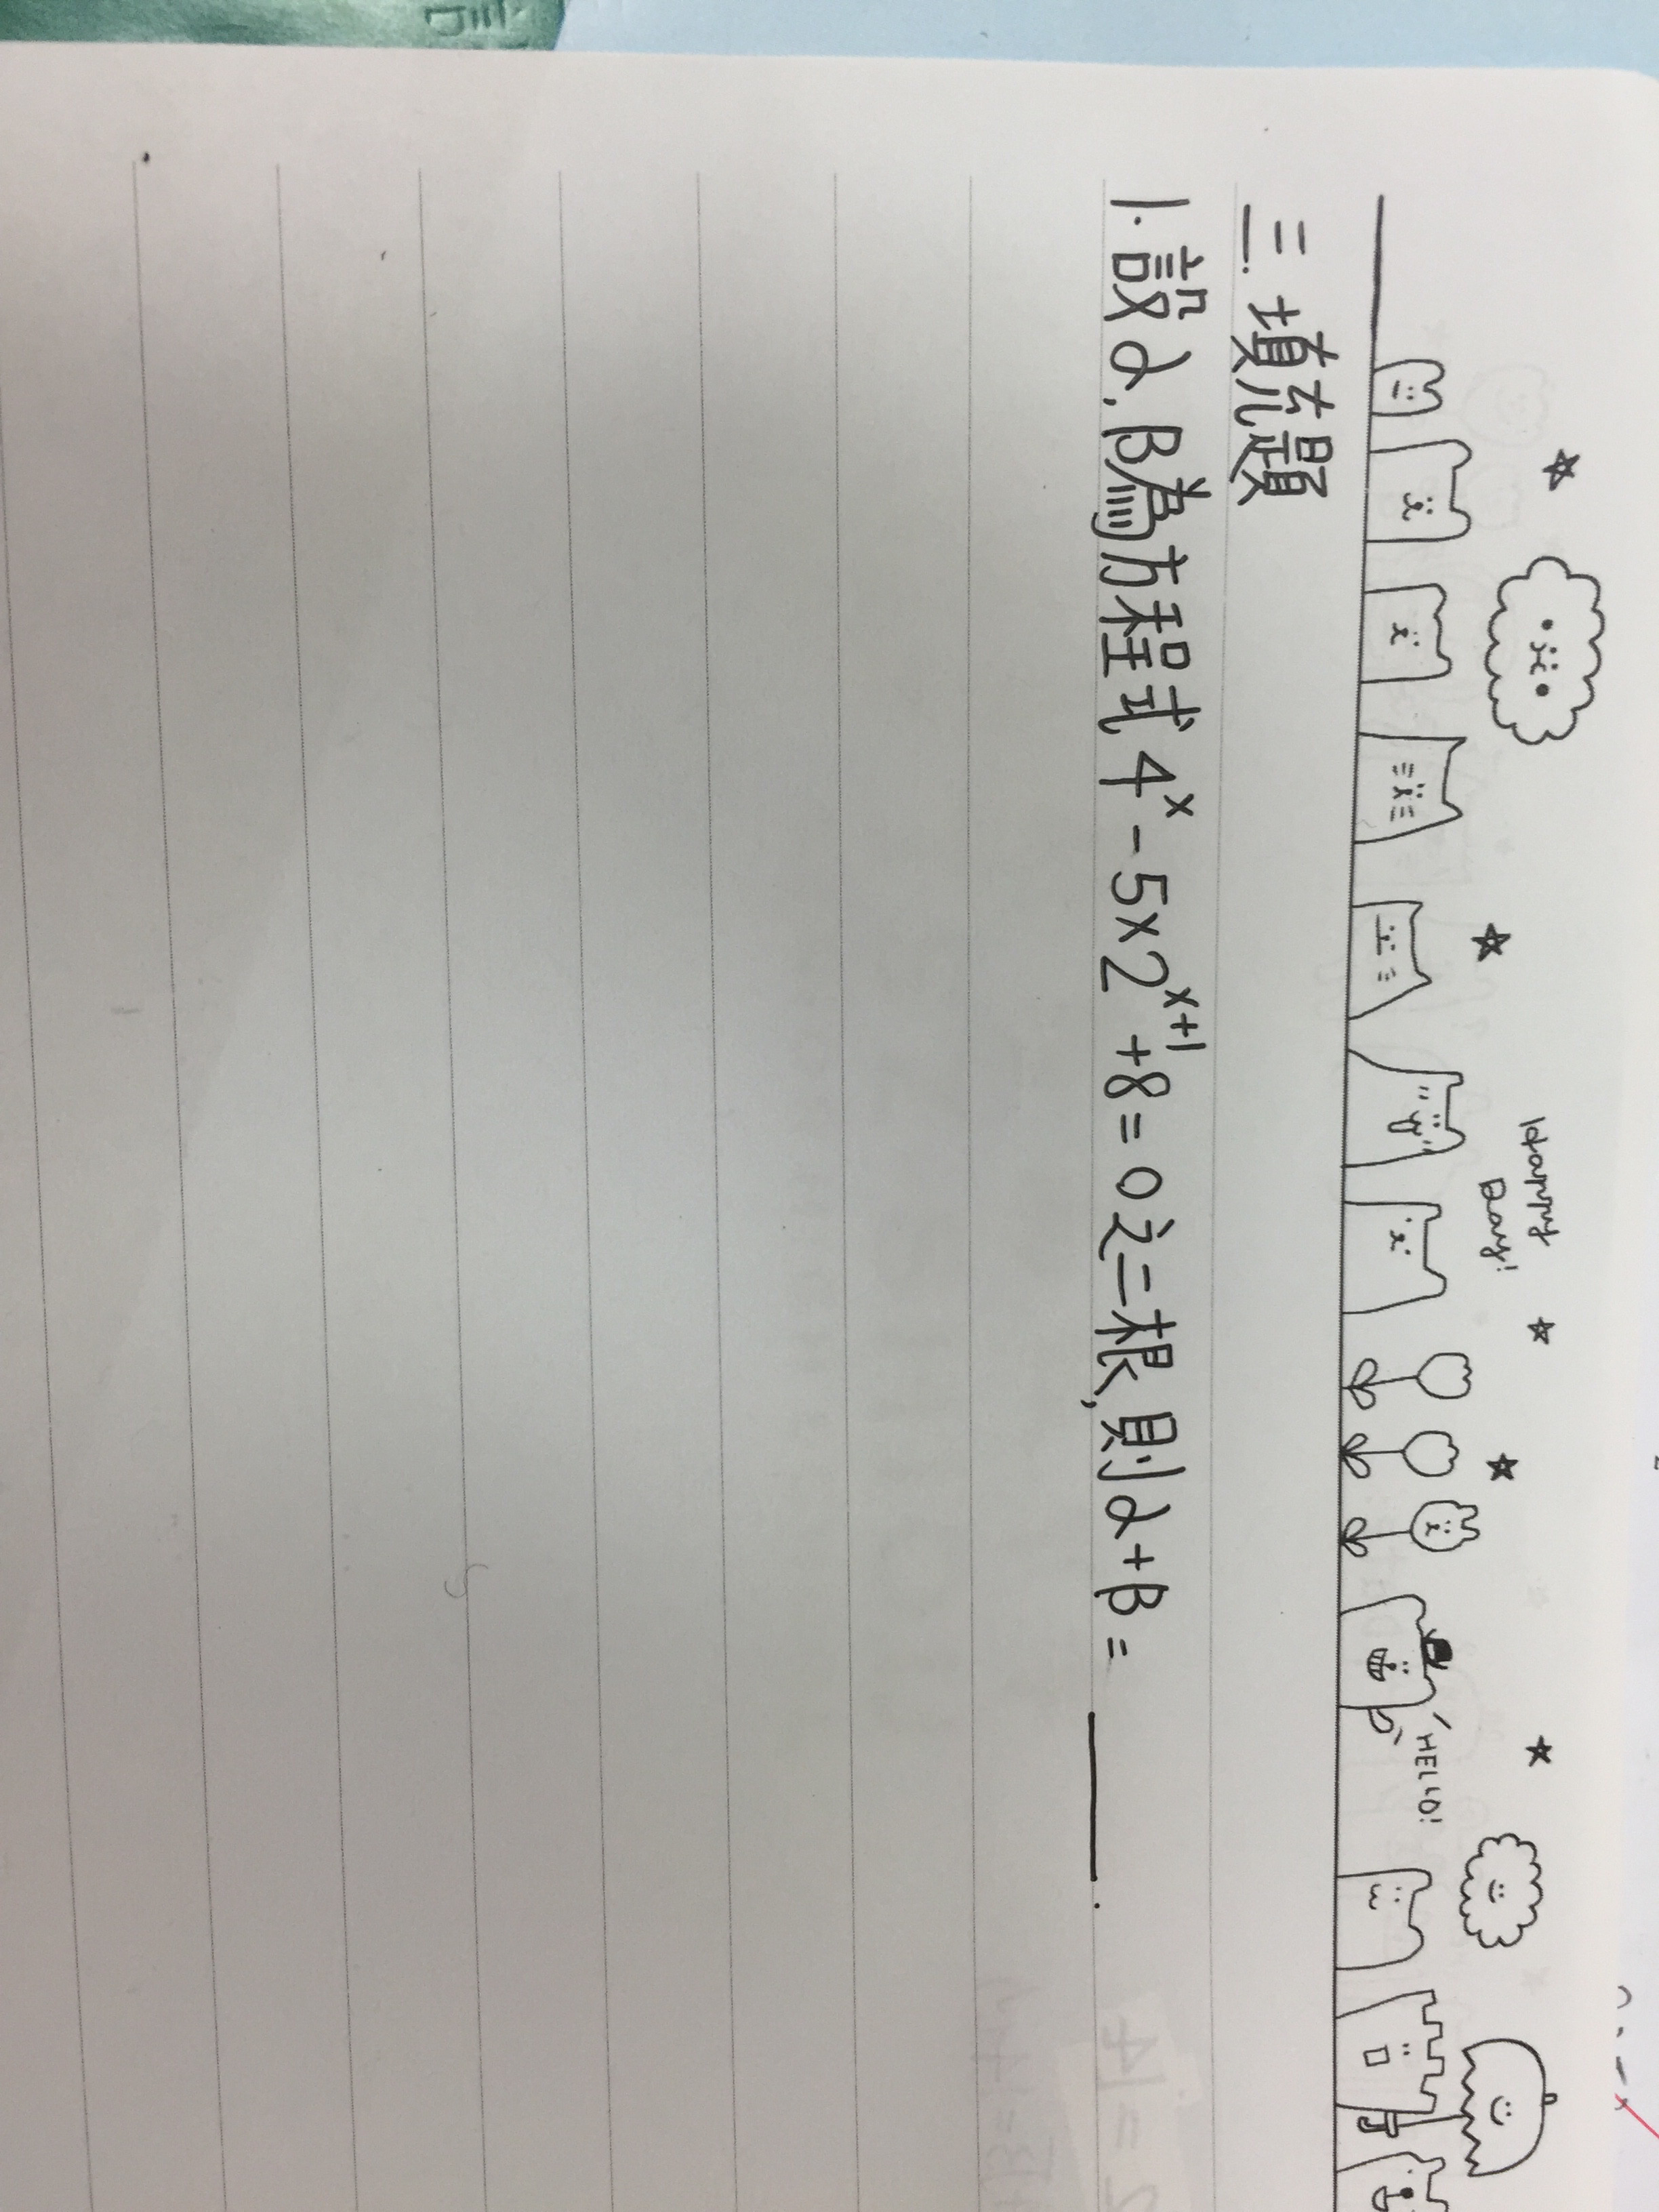 Happy
Day!
HELLO!
三. 填充題
1. 設α, β為方程式 4ˣ - 5×2ˣ⁺¹ + 8 = 0 之二根, 則α+β = ______.